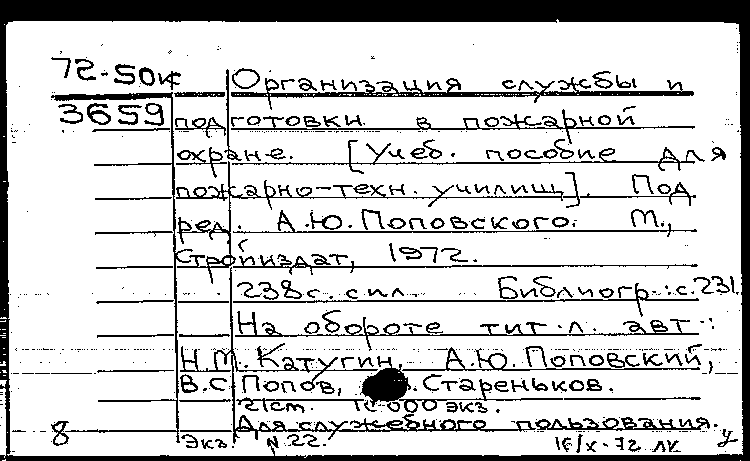 72-50к Организация службы и
3659 подготовки в пожарной
охране. [Учеб. пособие для
пожарно-техн. училищ]. Под
ред. А.Ю. Поповского. М.,
Стройиздат, 1972.
238 с. с ил. Библиогр.: с. 231.
На обороте тит. л. авт.:
Н.М. Катугин, А.Ю. Поповский,
В.С. Попов, Стареньков.
21 см. 10 000 экз.
Для служебного пользования.
8 Экз. N 22. 72 ЛК У